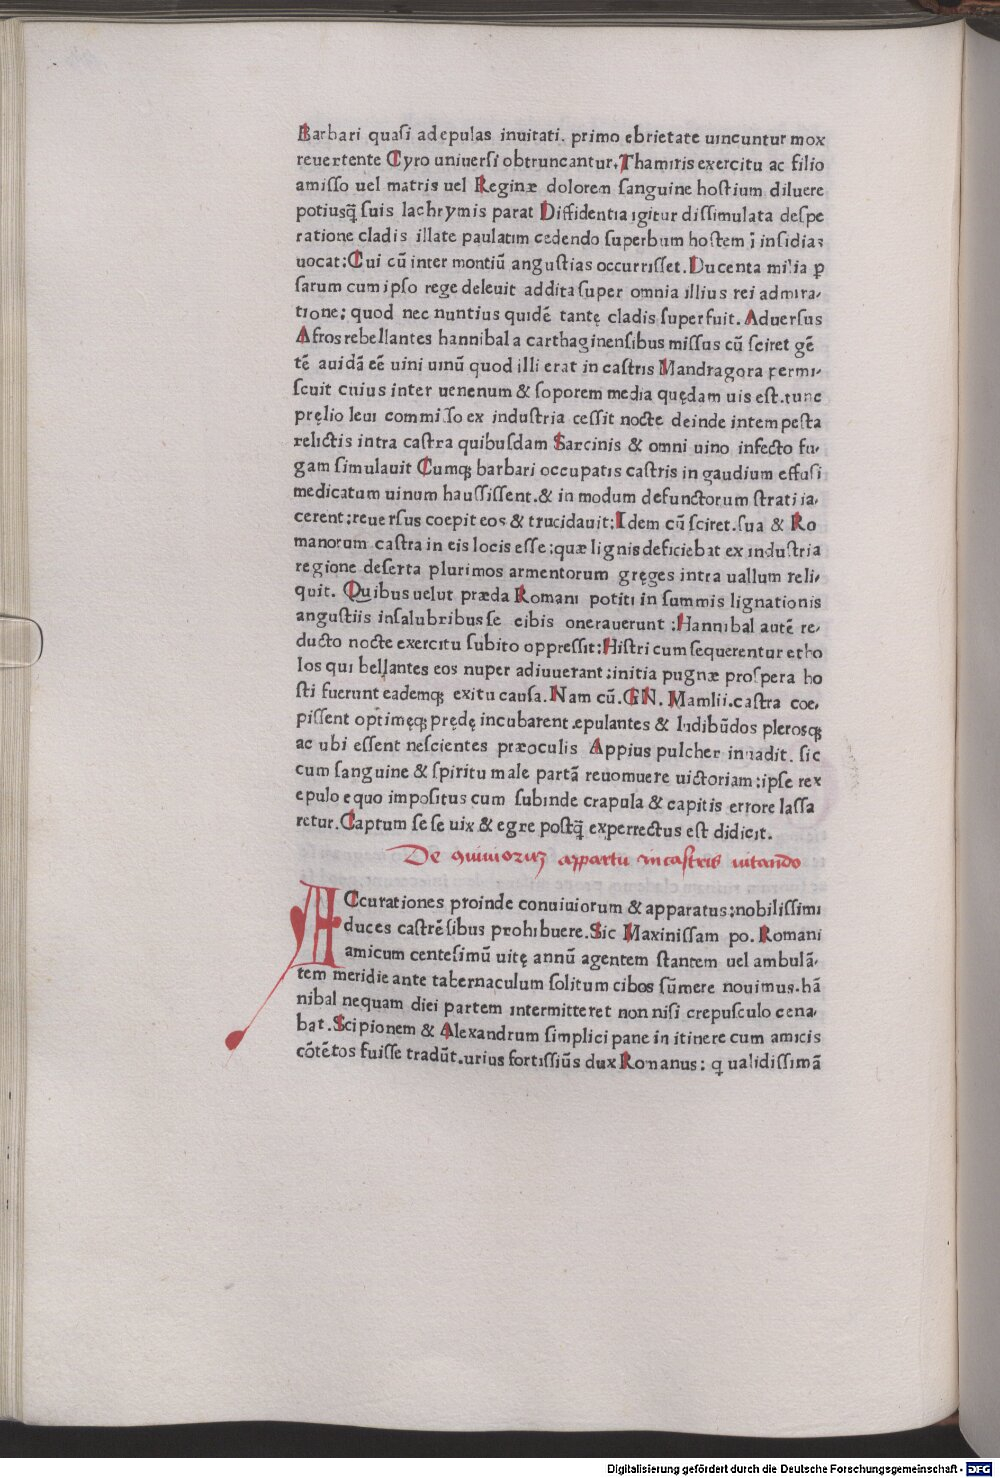 Barbari quaſi ad epulas inuitati. primo ebrietate uincuntur mox
reuertente Cyro uniuerſi obtruncantur. Thamiris exercitu ac filio
amiſſo uel matris uel Reginæ dolorem ſanguine hoſtium diluere
potiusq̃ ſuis lachrymis parat Diffidentia igitur diſſimulata deſpe
ratione cladis illate paulatim cedendo ſuperbum hoſtem ĩ inſidias
uocat: Cui cũ inter montiũ anguſtias occurriſſet. Ducenta milia ꝑ
ſarum cum ipſo rege deleuit addita ſuper omnia illius rei admira⸗
tione; quod nec nuntius quidẽ tantę cladis ſuperfuit. Aduerſus
Afros rebellantes hannibal a carthaginenſibus miſſus cũ ſciret gẽ
tẽ auidã eẽ uini uinũ quod illi erat in caſtris Mandragora permi⸗
ſcuit cuius inter uenenum & ſoporem media quędam uis eſt. tunc
pręlio leui commiſſo ex induſtria ceſſit nocte deinde intempeſta
relictis intra caſtra quibuſdam Sarcinis & omni uino infecto fu⸗
gam ſimulauit Cumq; barbari occupatis caſtris in gaudium effuſi
medicatum uinum hauſſiſſent. & in modum defunctorum ſtrati ia⸗
cerent; reuerſus coepit eos & trucidauit; Idem cũ ſciret. ſua & Ro
manorum caſtra in eis locis eſſe; quæ lignis deficiebat ex induſtria
regione deſerta plurimos armentorum gręges intra uallum reli⸗
quit. Quibus uelut præda Romani potiti in ſummis lignationis
anguſtiis inſalubribus ſe cibis onerauerunt ; Hannibal autẽ re⸗
ducto nocte exercitu ſubito oppreſſit; Hiſtri cum ſequerentur etho
los qui bellantes eos nuper adiuuerant ; initia pugnæ proſpera ho
ſti fuerunt eademq; exitu cauſa. Nam cũ. GN. Mamlii. caſtra coe⸗
piſſent optimęq; prędę incubarent .epulantes & ludibũdos plerosq;
ac ubi eſſent neſcientes præoculis Appius pulcher inuadit. ſic
cum ſanguine & ſpiritu male partã reuomuere uictoriam; ipſe rex
epulo equo impoſitus cum ſubinde crapula & capitis errore laſſa
retur. Captum ſe ſe uix & egre poſtq̃ experrectus eſt didicit.
De ꝯuiuioꝝ appartu in caſtris uitando
ACcurationes proinde conuiuiorum & apparatus; nobiliſſimi
duces caſtrẽſibus prohibuere. Sic Maxiniſſam po. Romani
amicum centeſimũ uitę annũ agentem ſtantem uel ambulã⸗
tem meridie ante tabernaculum ſolitum cibos ſũmere nouimus. hã
nibal nequam diei partem intermitteret non niſi crepuſculo cena⸗
bat. Scipionem & Alexandrum ſimplici pane in itinere cum amicis
cõtẽtos fuiſſe tradũt. urius fortiſſiũs dux Romanus; q ualidiſſimã
Digitalisierung gefördert durch die Deutsche Forschungsgemeinschaft - DFG